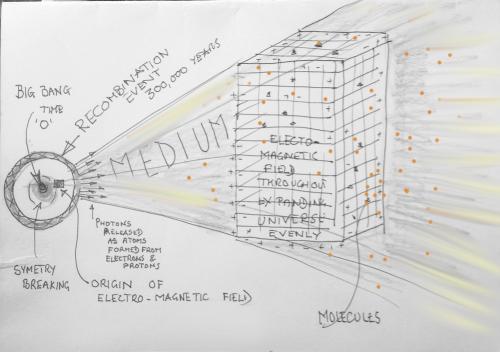 BIG BANG
TIME
'O'
RECOMBINATION
EVENT
300,000 YEARS
MEDIUM
ELECTO-
MAGNETIC
FIELD
THROUGHOUT
EXPANDING
UNIVERSE
EVENLY
PHOTONS
RELEASED
AS ATOMS
FORMED FROM
ELECTRONS &
PROTONS
SYMETRY
BREAKING
ORIGIN OF
ELECTRO-MAGNETIC FIELD
MOLECULES